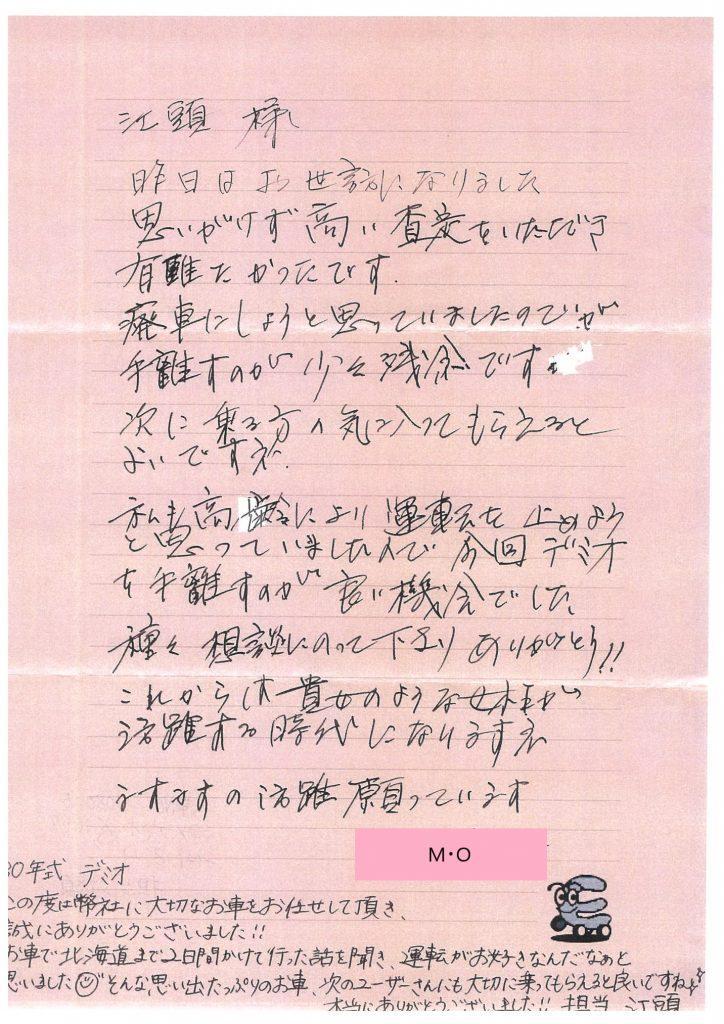 江頭 様
昨日はお世話になりました
思いがけず高い査定をいただき
有難たかったです.
廃車にしようと思っていましたのでが
手離すのが 少々残念です.
次に乗る方の気に入ってもらえると
よいですネ.
私も高齢により運転を止めよう
と思っていましたので 今回デミオ
を手離すのが 良い機会でした
種々想談にのって下さり ありがとう!!
これからは貴女のような女性が
活躍する時代になりますネ
ますますの活躍願っています
M・O
30年式 デミオ
この度は幣社に大切なお車をお任せして頂き、
誠にありがとうございました!!
お車で北海道まで2日間かけて行った話を聞き、運転がお好きなんだなぁと
思いました☺そんな思い出たっぷりのお車、次のユーザーさんにも大切に乗ってもらえると良いですね
本当にありがとうございました!! 担当 江頭